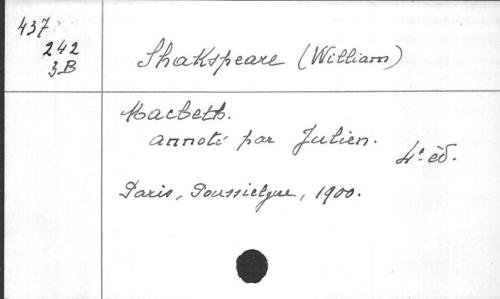 437
242
3B
Shakspeare (William)
Macbeth.
annoté par Julien.
4e éd.
Paris, Poussielgue, 1900.